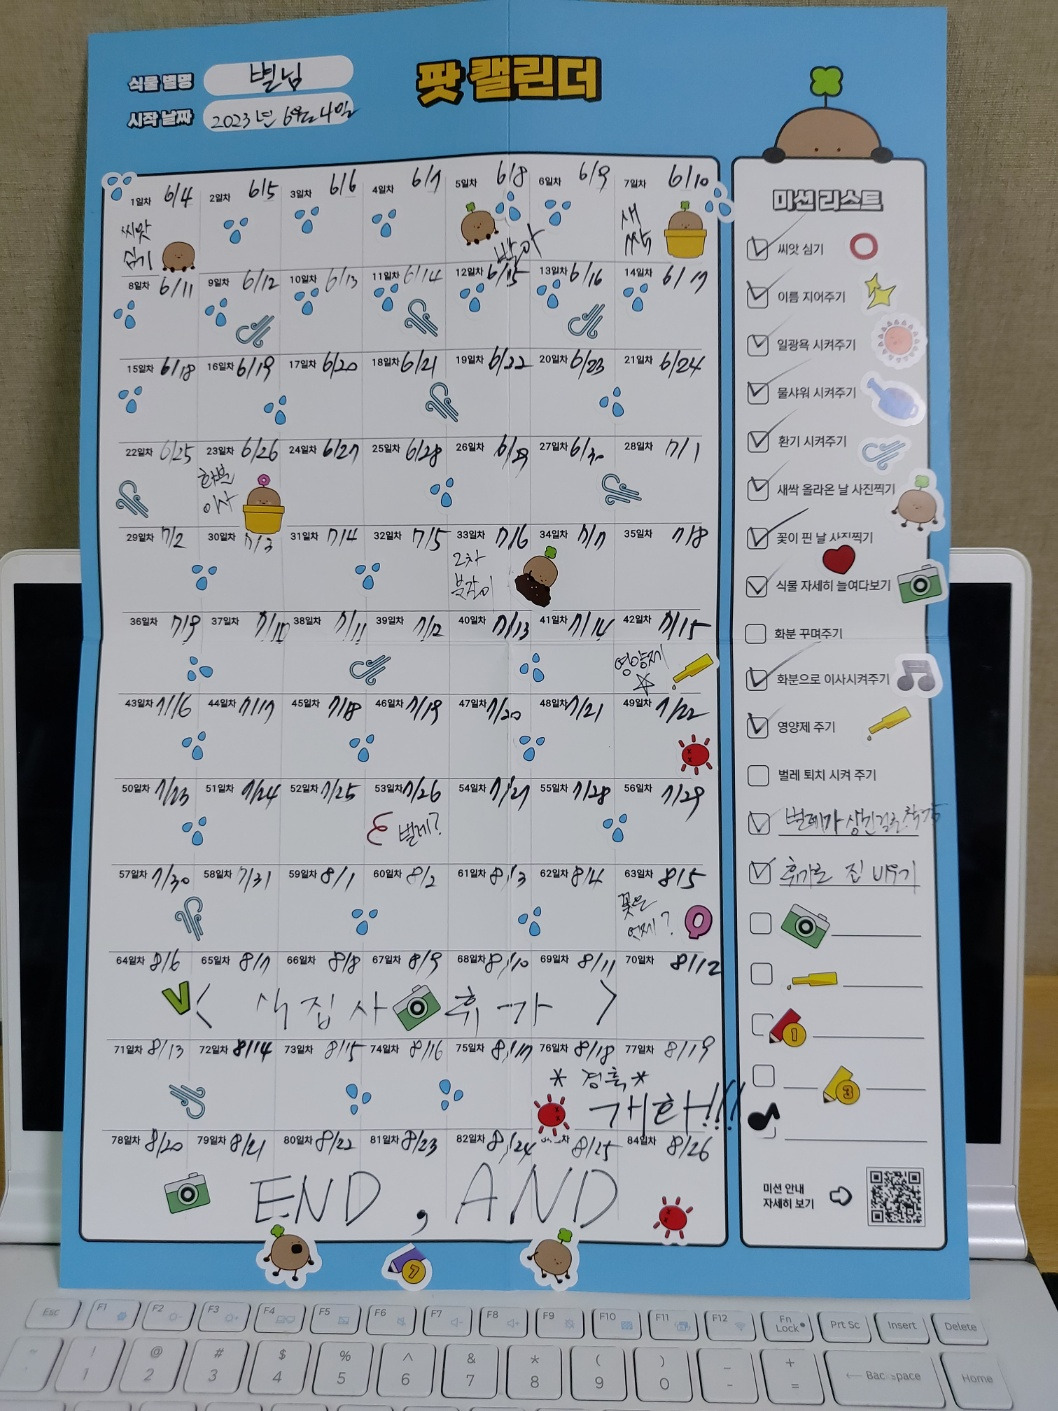 식물 별명 별님
팟 캘린더
시작 날짜 2023년 6월 4일
1일차 6/4 2일차 6/5 3일차 6/6 4일차 6/7 5일차 6/8 6일차 6/9 7일차 6/10
씨앗 심기 발아 새싹
8일차 6/11 9일차 6/12 10일차 6/13 11일차 6/14 12일차 6/15 13일차 6/16 14일차 6/17
15일차 6/18 16일차 6/19 17일차 6/20 18일차 6/21 19일차 6/22 20일차 6/23 21일차 6/24
22일차 6/25 23일차 6/26 24일차 6/27 25일차 6/28 26일차 6/29 27일차 6/30 28일차 7/1
화분 이사
29일차 7/2 30일차 7/3 31일차 7/4 32일차 7/5 33일차 7/6 34일차 7/7 35일차 7/8
2차 분갈이
36일차 7/9 37일차 7/10 38일차 7/11 39일차 7/12 40일차 7/13 41일차 7/14 42일차 7/15
영양제
43일차 7/16 44일차 7/17 45일차 7/18 46일차 7/19 47일차 7/20 48일차 7/21 49일차 7/22
50일차 7/23 51일차 7/24 52일차 7/25 53일차 7/26 54일차 7/27 55일차 7/28 56일차 7/29
벌레?
57일차 7/30 58일차 7/31 59일차 8/1 60일차 8/2 61일차 8/3 62일차 8/4 63일차 8/5
꽃은 언제?
64일차 8/6 65일차 8/7 66일차 8/8 67일차 8/9 68일차 8/10 69일차 8/11 70일차 8/12
< 식집사 휴가 >
71일차 8/13 72일차 8/14 73일차 8/15 74일차 8/16 75일차 8/17 76일차 8/18 77일차 8/19
* 경축 *
개화!!!
78일차 8/20 79일차 8/21 80일차 8/22 81일차 8/23 82일차 8/24 8/25 84일차 8/26
END, AND
7
미션 리스트
씨앗 심기
이름 지어주기
일광욕 시켜주기
물샤워 시켜주기
환기 시켜주기
새싹 올라온 날 사진찍기
꽃이 핀 날 사진찍기
식물 자세히 들여다보기
화분 꾸며주기
화분으로 이사시켜주기
영양제 주기
벌레 퇴치 시켜 주기
벌레가 생긴건줄
휴가로 집 비우기
1
3
미션 안내
자세히 보기
Esc F1 F2 F3 F4 F5 F6 F7 F8 F9 F10 F11 F12 Fn Lock Prt Sc Insert Delete
! 1 @ 2 # 3 $ 4 % 5 ^ 6 & 7 * 8 ( 9 ) 0 _ - + = ← Backspace Home